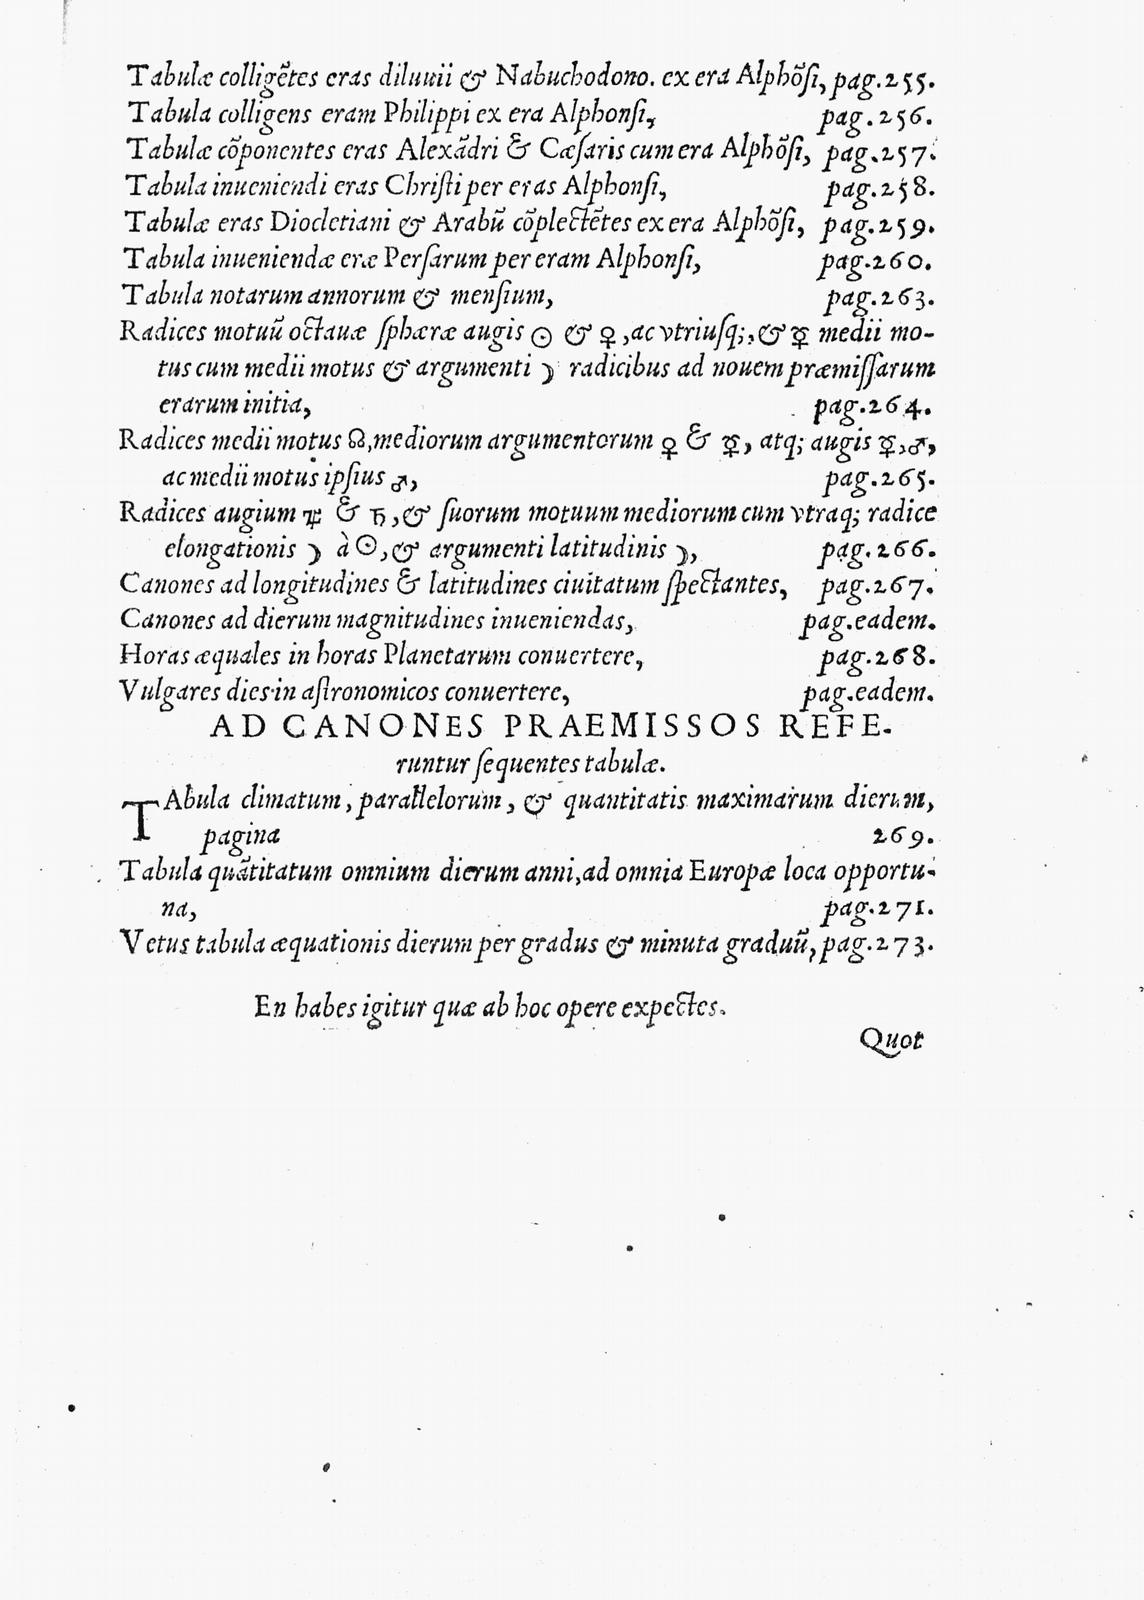 Tabulæ colligẽtes eras diluuii & Nabuchodono. ex era Alphõſi, pag.255.
Tabula colligens eram Philippi ex era Alphonſi, pag.256.
Tabulæ cõponentes eras Alexãdri & Cæſaris cum era Alphõſi, pag.257.
Tabula inueniendi eras Chriſti per eras Alphonſi, pag.258.
Tabulæ eras Diocletiani & Arabũ cõplectẽtes ex era Alphõſi, pag.259.
Tabula inueniendæ eræ Perſarum per eram Alphonſi, pag.260.
Tabula notarum annorum & menſium, pag.263.
Radices motuũ octauæ ſphæræ augis ☉ & ♀, ac vtriuſq;, & ☿ medii mo-
tus cum medii motus & argumenti ☽ radicibus ad nouem præmiſſarum
erarum initia, pag.264.
Radices medii motus ☊, mediorum argumentorum ♀ & ☿, atq; augis ☿, ♂,
ac medii motus ipſius ♂, pag.265.
Radices augium ♃ & ♄, & ſuorum motuum mediorum cum vtraq; radice
elongationis ☽ à ☉, & argumenti latitudinis ☽, pag.266.
Canones ad longitudines & latitudines ciuitatum ſpectantes, pag.267.
Canones ad dierum magnitudines inueniendas, pag.eadem.
Horas æquales in horas Planetarum conuertere, pag.268.
Vulgares dies in aſtronomicos conuertere, pag.eadem.
AD CANONES PRAEMISSOS REFE-
runtur ſequentes tabulæ.
TAbula climatum, parallelorum, & quantitatis maximarum dierum,
pagina 269.
Tabula quãtitatum omnium dierum anni, ad omnia Europæ loca opportu-
na, pag.271.
Vetus tabula æquationis dierum per gradus & minuta graduũ, pag.273.
En habes igitur quæ ab hoc opere expectes.
Quot